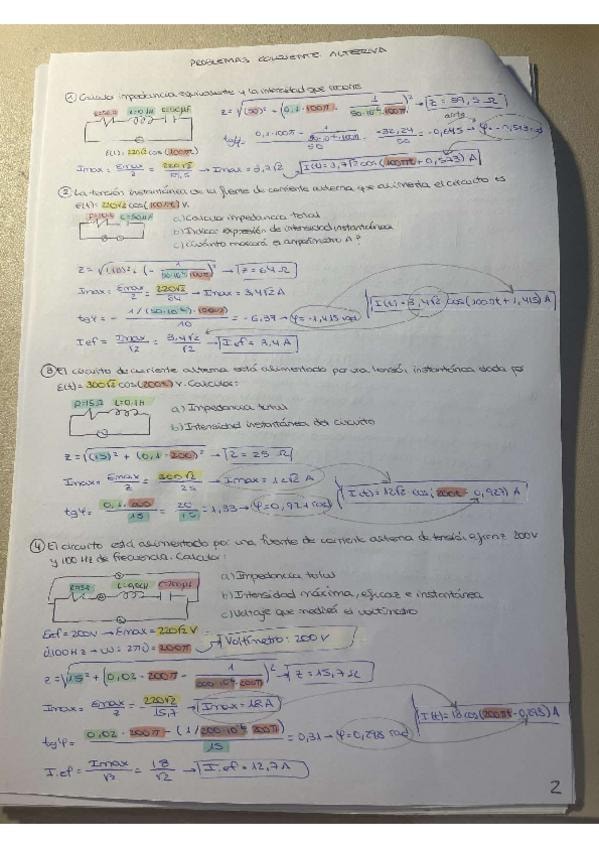 PROBLEMAS CORRIENTE ALTERNA
① Calcula impedancia equivalente y la intensidad que recorre
R=50Ω L=0,1H C=50μF
Z=√(50)² + (0,1·100π - 1/50·10⁻⁶·100π)² → Z = 59,5 Ω
E(t)=220√2 cos(100πt)
tgφ= 0,1·100π - 1/50·10⁻⁶·100π / 50 = -32,24/50 = -0,645 → φ=-0,573 rad
Imax= Emax/Z = 220√2/59,5 → Imax=3,7√2 → I(t)=3,7√2 cos(100πt+0,573) A
② La tensión instantánea de la fuente de corriente alterna que alimenta el circuito es
E(t)=220√2 cos(100πt) V.
R=10Ω C=50μF
a) Calcula impedancia total
b) Indicar expresión de intensidad instantánea
c) ¿Cuánto marcará el amperímetro A?
Z=√(10)²+(-1/50·10⁻⁶·100π)² → Z=64 Ω
Imax= Emax/Z = 220√2/64 → Imax=3,4√2 A
I(t)=3,4√2 cos(100πt+1,415) A
tgφ= - 1/(50·10⁻⁶)·100π / 10 = -6,37 → φ=-1,415 rad
Ief= Imax/√2 = 3,4√2/√2 → Ief= 3,4 A
③ El circuito de corriente alterna está alimentado por una tensión instantánea dada por
E(t)=300√2 cos(200t) V. Calcular:
R=15Ω L=0,1H
a) Impedancia total
b) Intensidad instantánea del circuito
Z=√(15)² + (0,1·200)² → Z=25 Ω
Imax= Emax/Z = 300√2/25 → Imax=12√2 A
I(t)=12√2 cos(200t-0,927) A
tgφ= 0,1·200/15 = 20/15 = 1,33 → φ=0,927 rad
④ El circuito está alimentado por una fuente de corriente alterna de tensión eficaz 200V
y 100 Hz de frecuencia. Calcular:
a) Impedancia total
b) Intensidad máxima, eficaz e instantánea
c) Voltaje que medirá el voltímetro
Eef=200V → Emax=220√2 V
Voltímetro: 200V
Z=√15²+(0,02·200π - 1/200·10⁻⁶·200π)² → Z=15,7Ω
Imax= Emax/Z = 220√2/15,7 → Imax=18A
I(t)=18 cos(200πt-0,298) A
tgφ= 0,02·200π-(1/200·10⁻⁶·200π) / 15 = 0,31 → φ=0,298 rad
I.ef= Imax/√2 = 18/√2 → I.ef=12,7 A
2